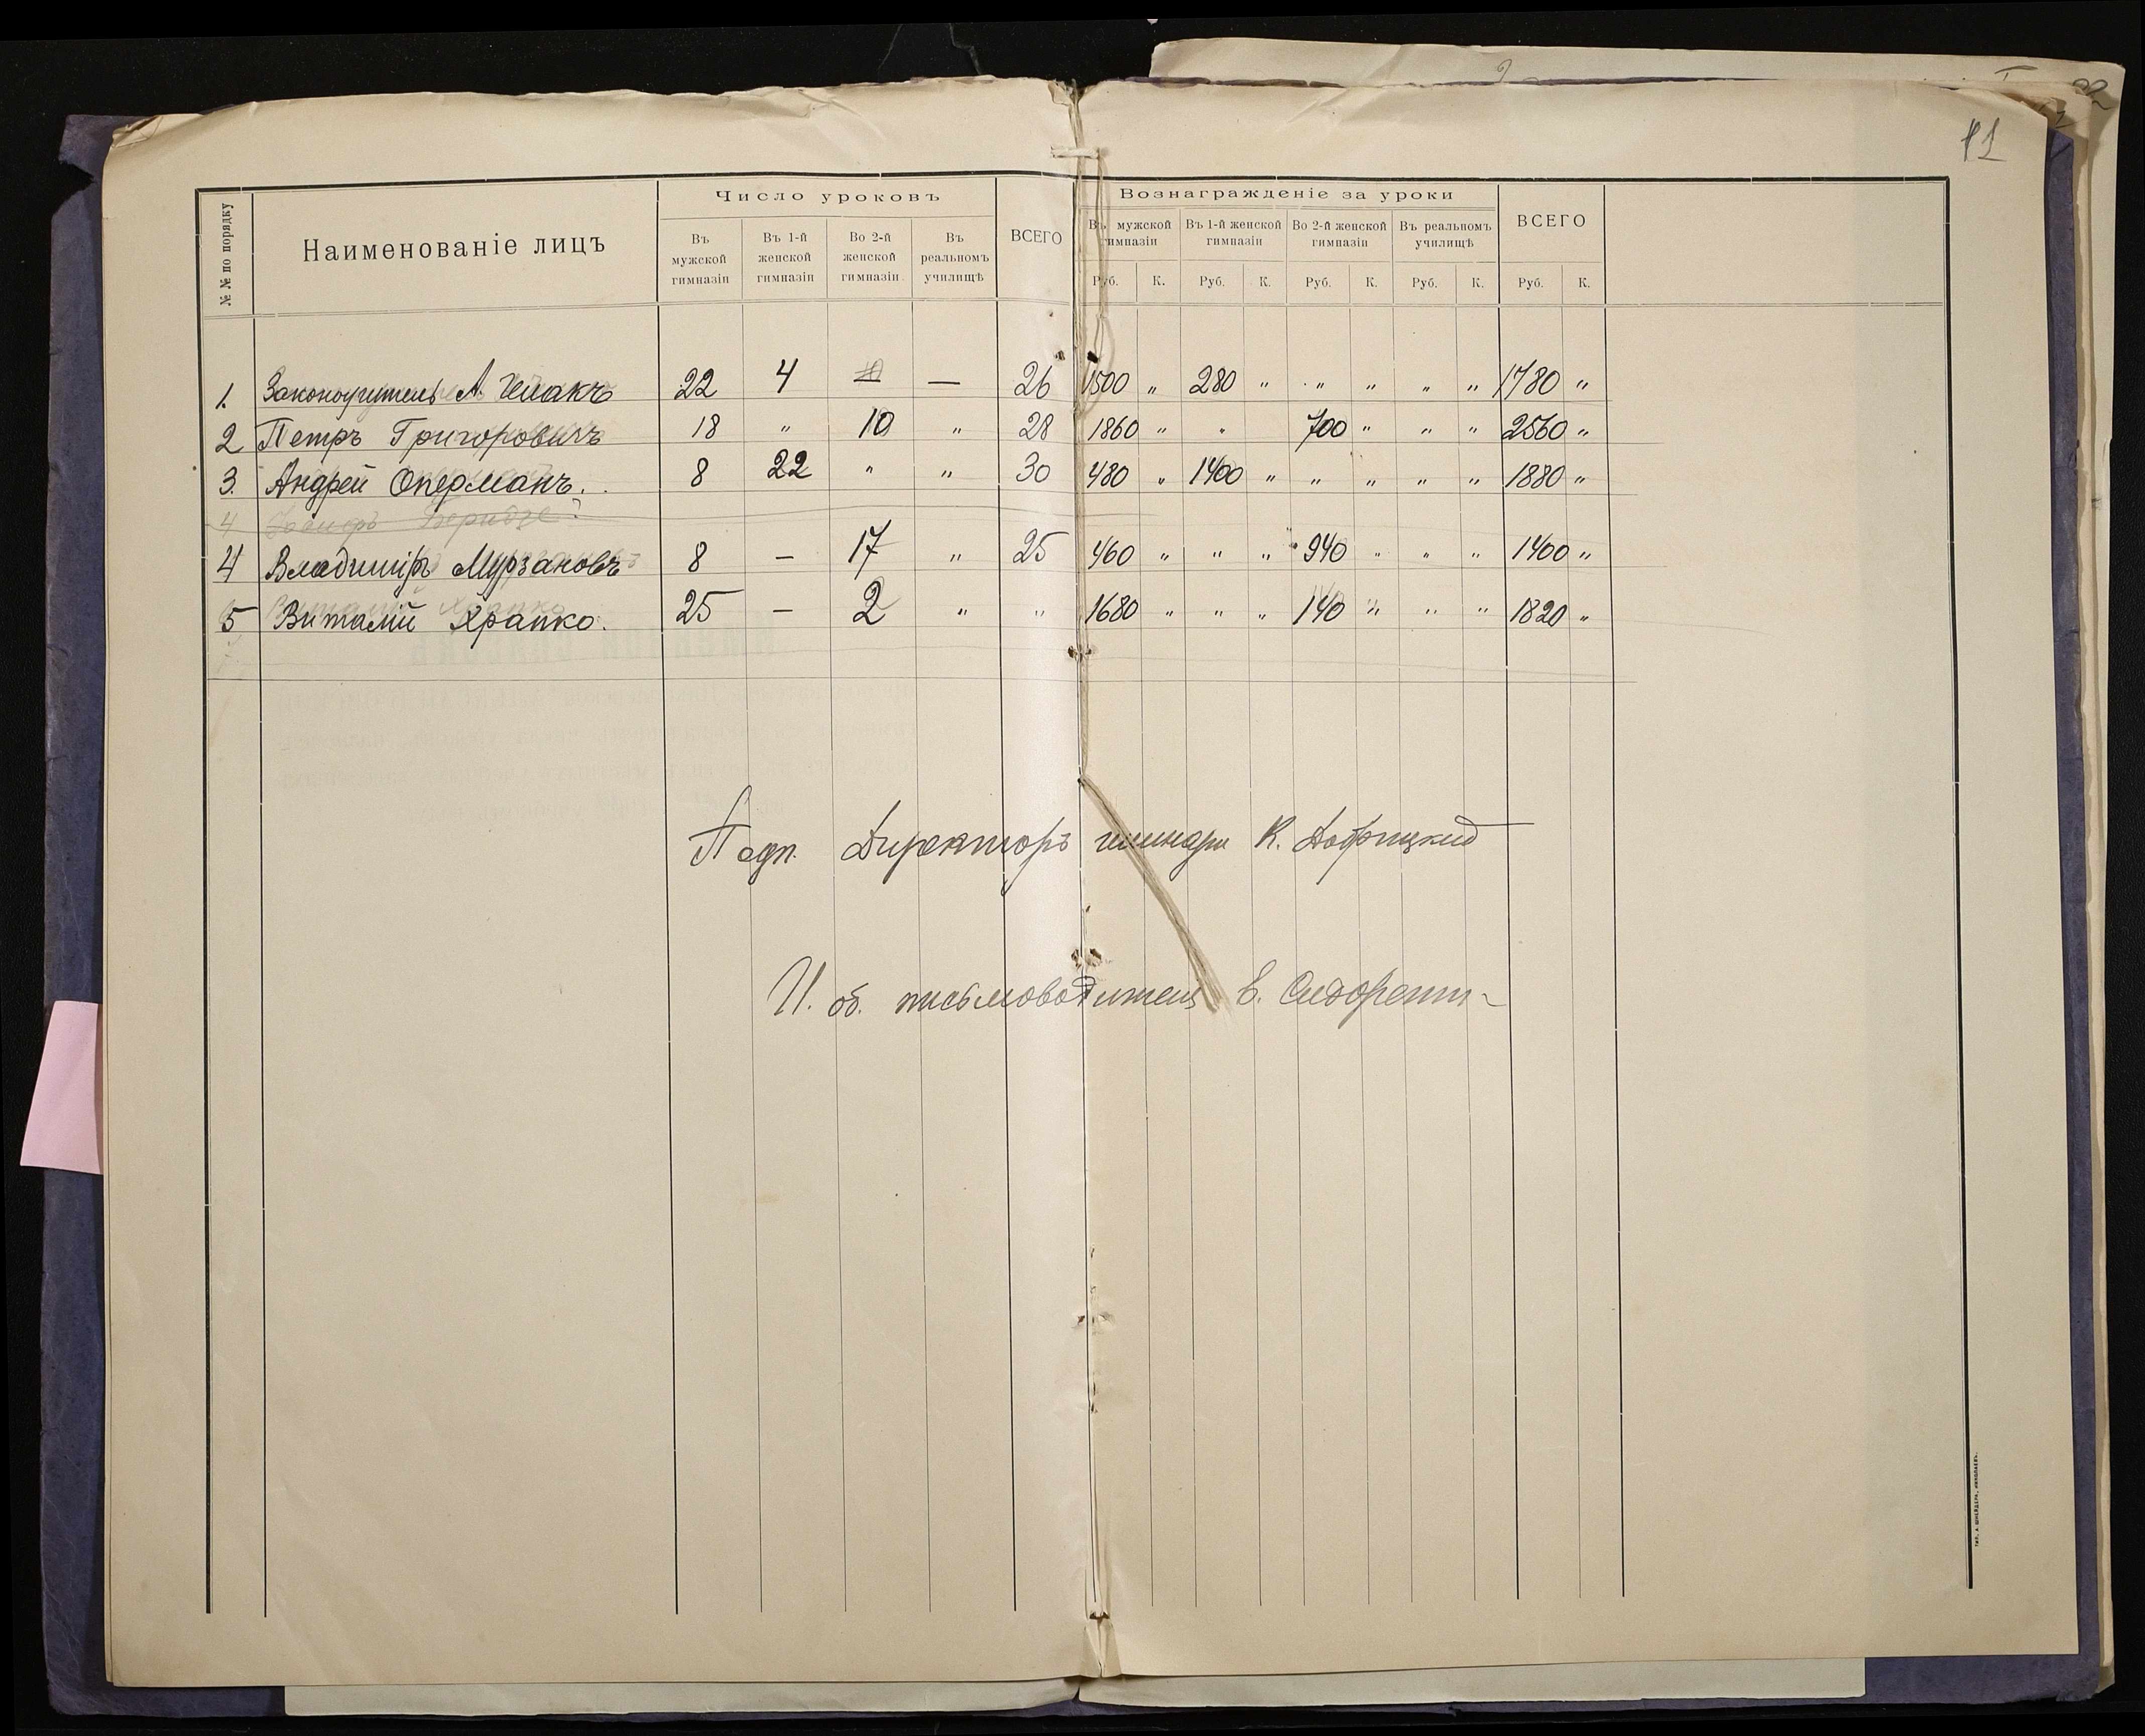 41
№№ по порядку
Наименованіе лицъ
Число уроковъ
Въ мужской гимназіи
Въ 1-й женской гимназіи
Во 2-й женской гимназіи
Въ реальномъ училищѣ
ВСЕГО
Вознагражденіе за уроки
Въ мужской гимназіи
Въ 1-й женской гимназіи
Во 2-й женской гимназіи
Въ реальномъ училищѣ
ВСЕГО
Руб. К. Руб. К. Руб. К. Руб. К. Руб. К.
1. Законоучитель А. 22 4 — — 26 1500 „ 280 „ „ „ „ „ 1780 „
2 Петръ Григоровичъ 18 „ 10 „ 28 1860 „ „ 700 „ „ „ 2560 „
3. Андрей Оперманъ. 8 22 „ „ 30 480 „ 1400 „ „ „ „ „ 1880 „
4
4 Владиміръ Мурзановъ 8 — 17 „ 25 460 „ „ „ 940 „ „ „ 1400 „
5 Виталій Храпко. 25 — 2 „ „ 1680 „ „ „ 140 „ „ „ 1820 „
Подп. Директоръ К. Добрицкий
И. об. письмоводителя
ТИП. А. ШНЕЙДЕРА, НИКОЛАЕВЪ.